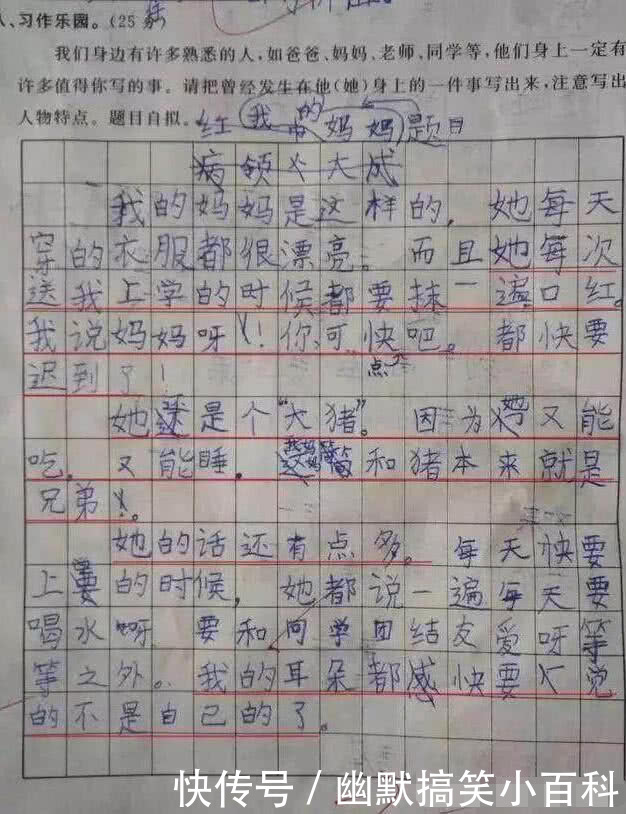 、习作乐园。(25分)
我们身边有许多熟悉的人,如爸爸、妈妈、老师、同学等,他们身上一定有
许多值得你写的事。请把曾经发生在他(她)身上的一件事写出来,注意写出
人物特点。题目自拟。
我的妈妈 题目
病领大成
我的妈妈是这样的,她每天
穿的衣服都很漂亮。而且她每次
送我上学的时候都要抹一遍口红。
我说妈妈呀!你可快点吧。都快要
迟到了!
她还是个“大猪”。因为她又能
吃,又能睡。我妈妈和猪本来就是
兄弟。
她的话还有点多。每天快要
上要的时候,她都说一遍每天要
喝水呀 要和同学团结友爱呀等
等之外。我的耳朵都感快要觉
的不是自己的了。
快传号/幽默搞笑小百科